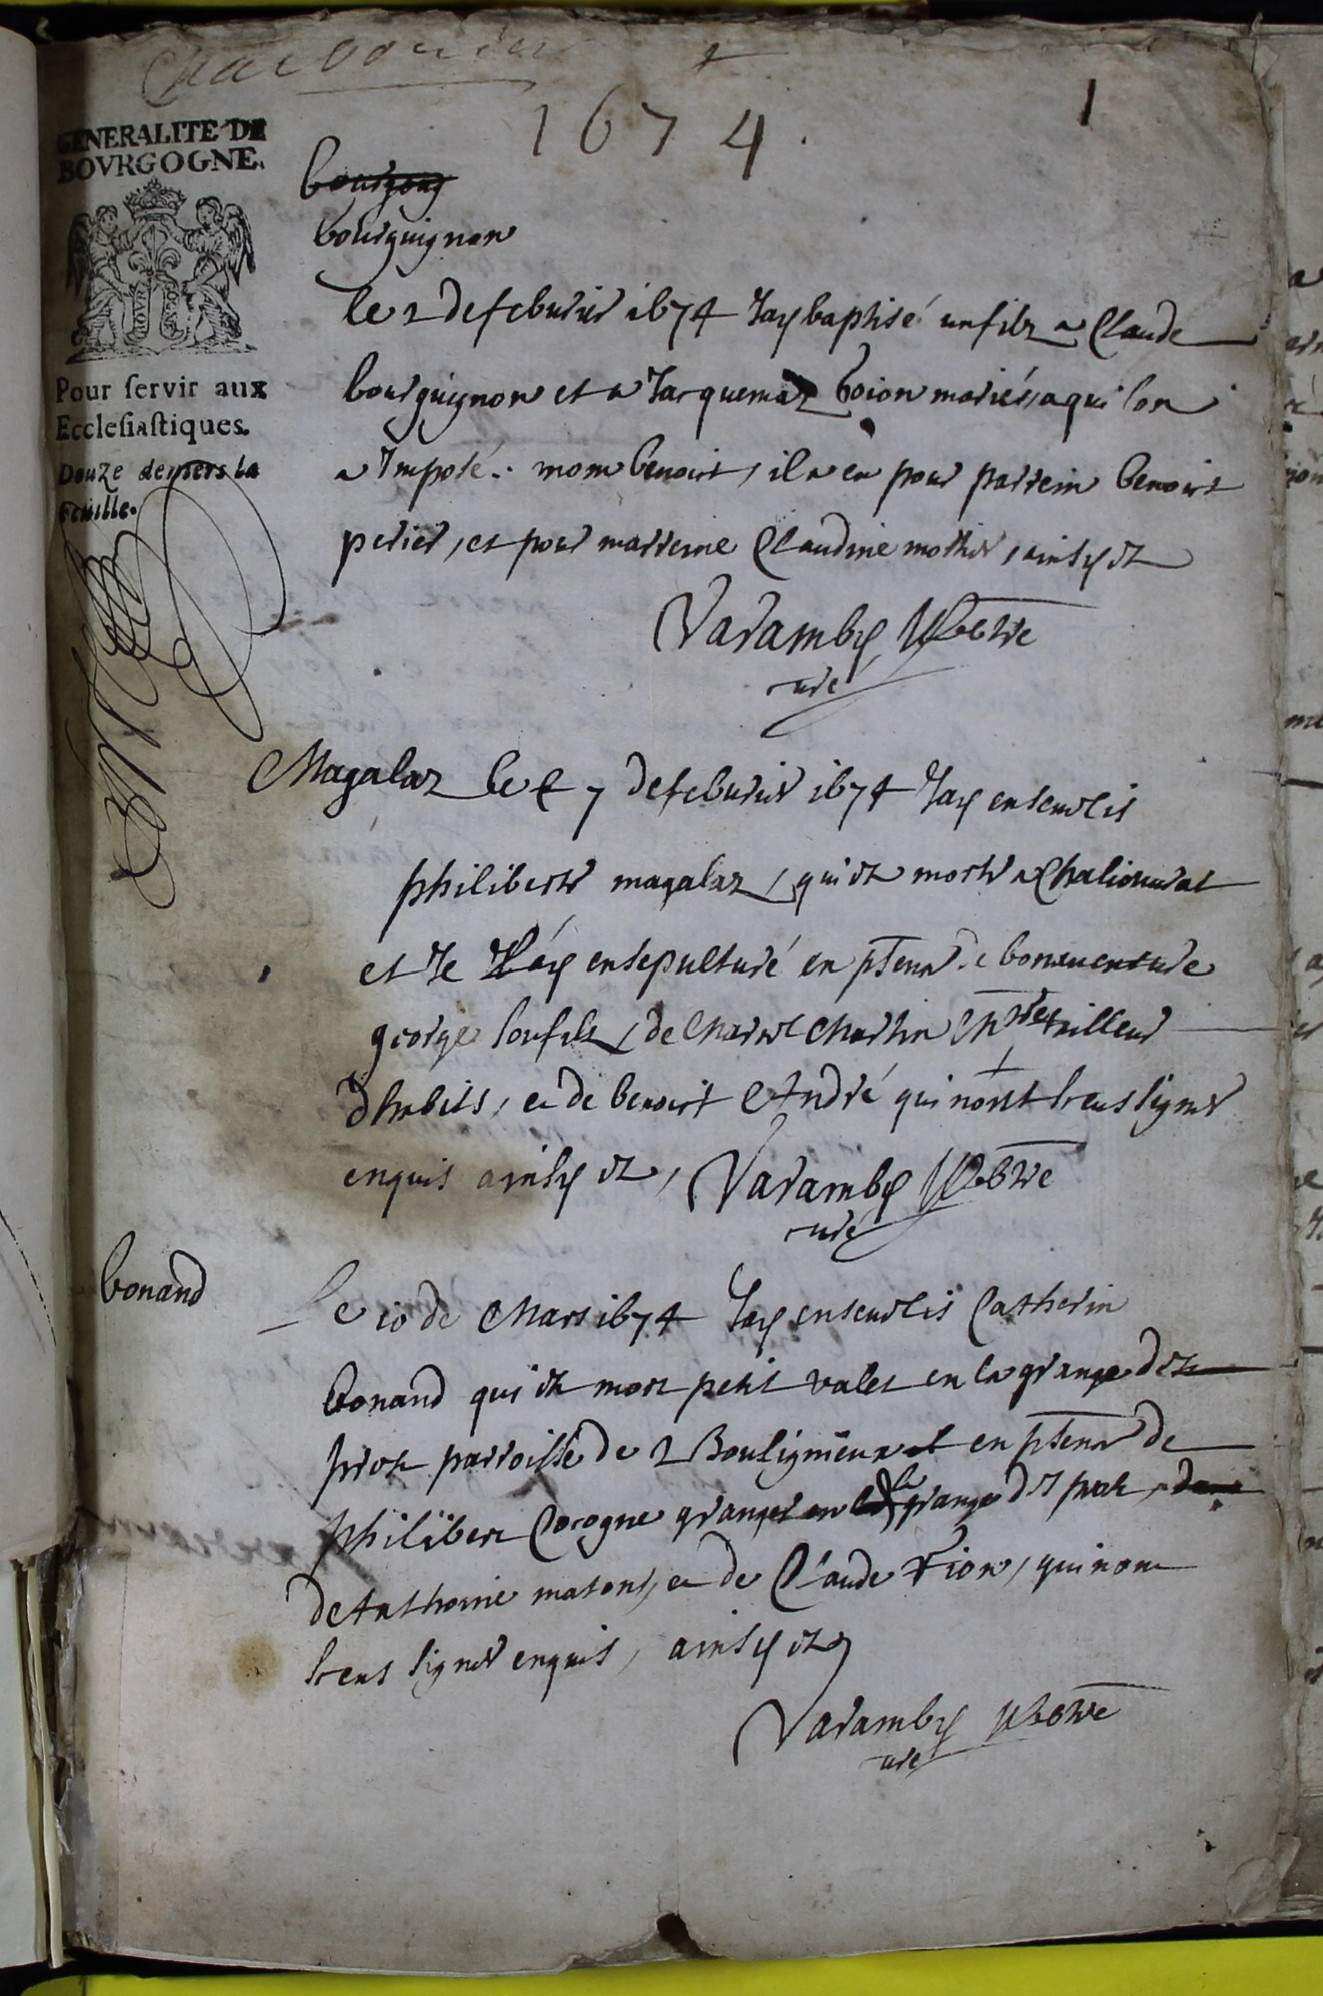 1674.
1
GENERALITE DE
BOVRGOGNE.
Pour ſervir aux
Eccleſiaſtiques.
Douze deniers la
Feüille.
bourgong
bourguignon
le 2 de feburier 1674 Jay baptisé un filz a Claude
bourguignon et a Jacquemaz boion mariés, a qui lon
a Imposé nom benoist, il a eu pour parrein benoist
perier, et pour marreine Claudine mothier, ainsy est
Varamby pbtre
curé
Magalaz le 7 de feburier 1674 Jay ensevelis
philiberte magalaz, qui est morte a Chalionvat
et Je Lay ensepulturé en pñce de bonaventure
george son filz, de Martin Mre tailleur
d'habits, et de benoist André qui nont sceus signer
enquis ainsy est, Varamby pbtre
curé
bonand
le 10 de Mars 1674 Jay ensevelis Catherin
bonand qui est mort petit valet en la grange des
parroisse de Bouligneux et en pñce de
philibert Cocogne granger en la grange
de Anthoine masont, et de Claude Fion, qui nont
sceus signer enquis, ainsy est
Varamby pbtre
curé